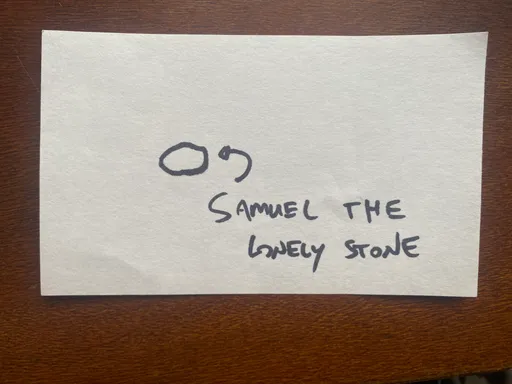 SAMUEL THE
LONELY STONE